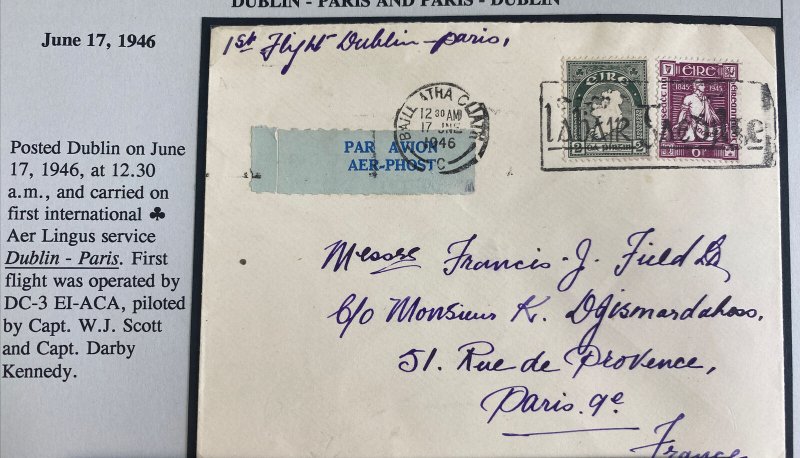 DUBLIN - PARIS AND PARIS - DUBLIN
June 17, 1946
Posted Dublin on June
17, 1946, at 12.30
a.m., and carried on
first international ♣
Aer Lingus service
Dublin - Paris. First
flight was operated by
DC-3 EI-ACA, piloted
by Capt. W.J. Scott
and Capt. Darby
Kennedy.
1st Flight Dublin-Paris.
BAILE ATHA CLIATH
12 30 AM
17 JNE
1946
PAR AVION
AER-PHOST
EIRE
2
EIRE
1845 1945
6
Labair Gaedilge
Messrs Francis. J. Field Ltd
c/o Monsieur K.
51. Rue de Provence,
Paris. 9e
France